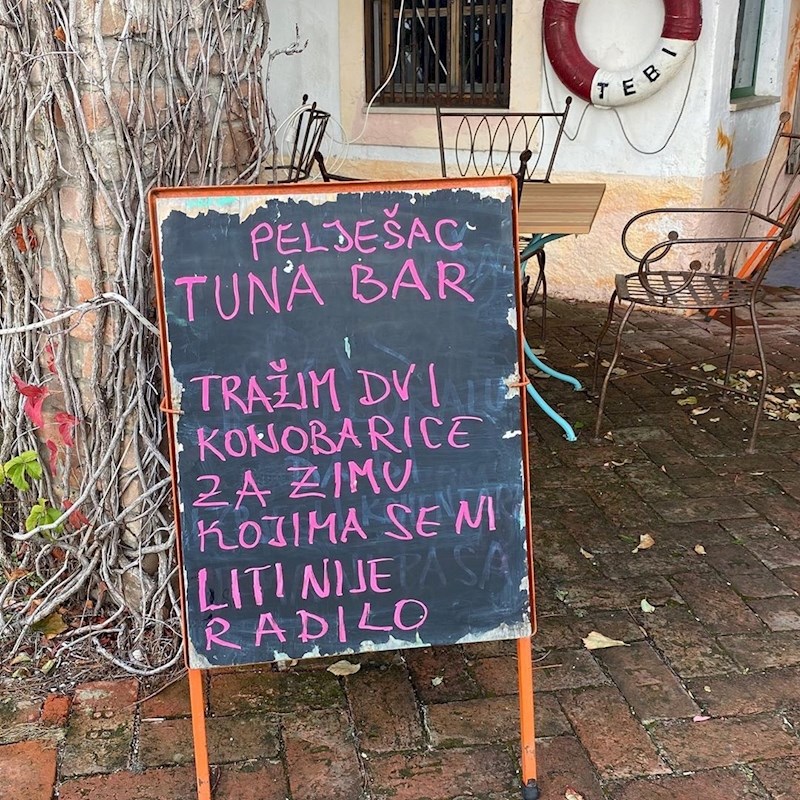 TEBI
PELJEŠAC
TUNA BAR
TRAŽIM DVI
KONOBARICE
ZA ZIMU
KOJIMA SE NI
LITI NIJE
RADILO